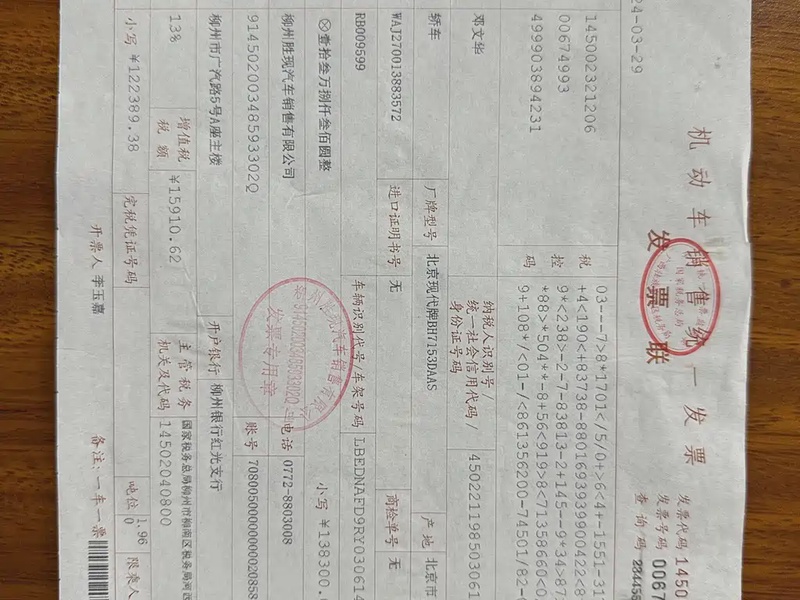 机动车销售统一发票
发票联
发票代码 1450
发票号码 0067
查询码
24-03-29
145002321206
00674993
499903894231
税
控
码
03---7>8*1701</5/0+>6<4-1551-31
+4<190<+83738-8801693939900422<8
9*<238>-2-7-83813-2+145--9*34>87
*88>*504**-8+56<919>8<71358660<0
9+108*/<01-/<861356200-74501/82-0
邓文华
纳税人识别号/
统一社会信用代码/
身份证号码
450221198503061
轿车
厂牌型号
北京现代牌BH7153DAAS
产地
北京市
WAJ270013883572
进口证明书号
无
商检单号
无
RB009599
车辆识别代号/车架号码
LBEDNAFD9RY030614
⊗壹拾叁万捌仟叁佰圆整
小写 ¥138300.0
柳州胜现汽车销售有限公司
电话
0772-8803008
9145020034859330​2Q
账号
柳州市广汽路5号A座主楼
开户银行
柳州银行红光支行
13%
增值税
税额
¥15910.62
主管税务
机关及代码
国家税务总局柳州市柳南区税务局河西
14502040800
小写 ¥122389.38
完税凭证号码
吨位
1.96
0
限乘人
开票人 李玉嘉
备注:一车一票
发票专用章
国家税务总局